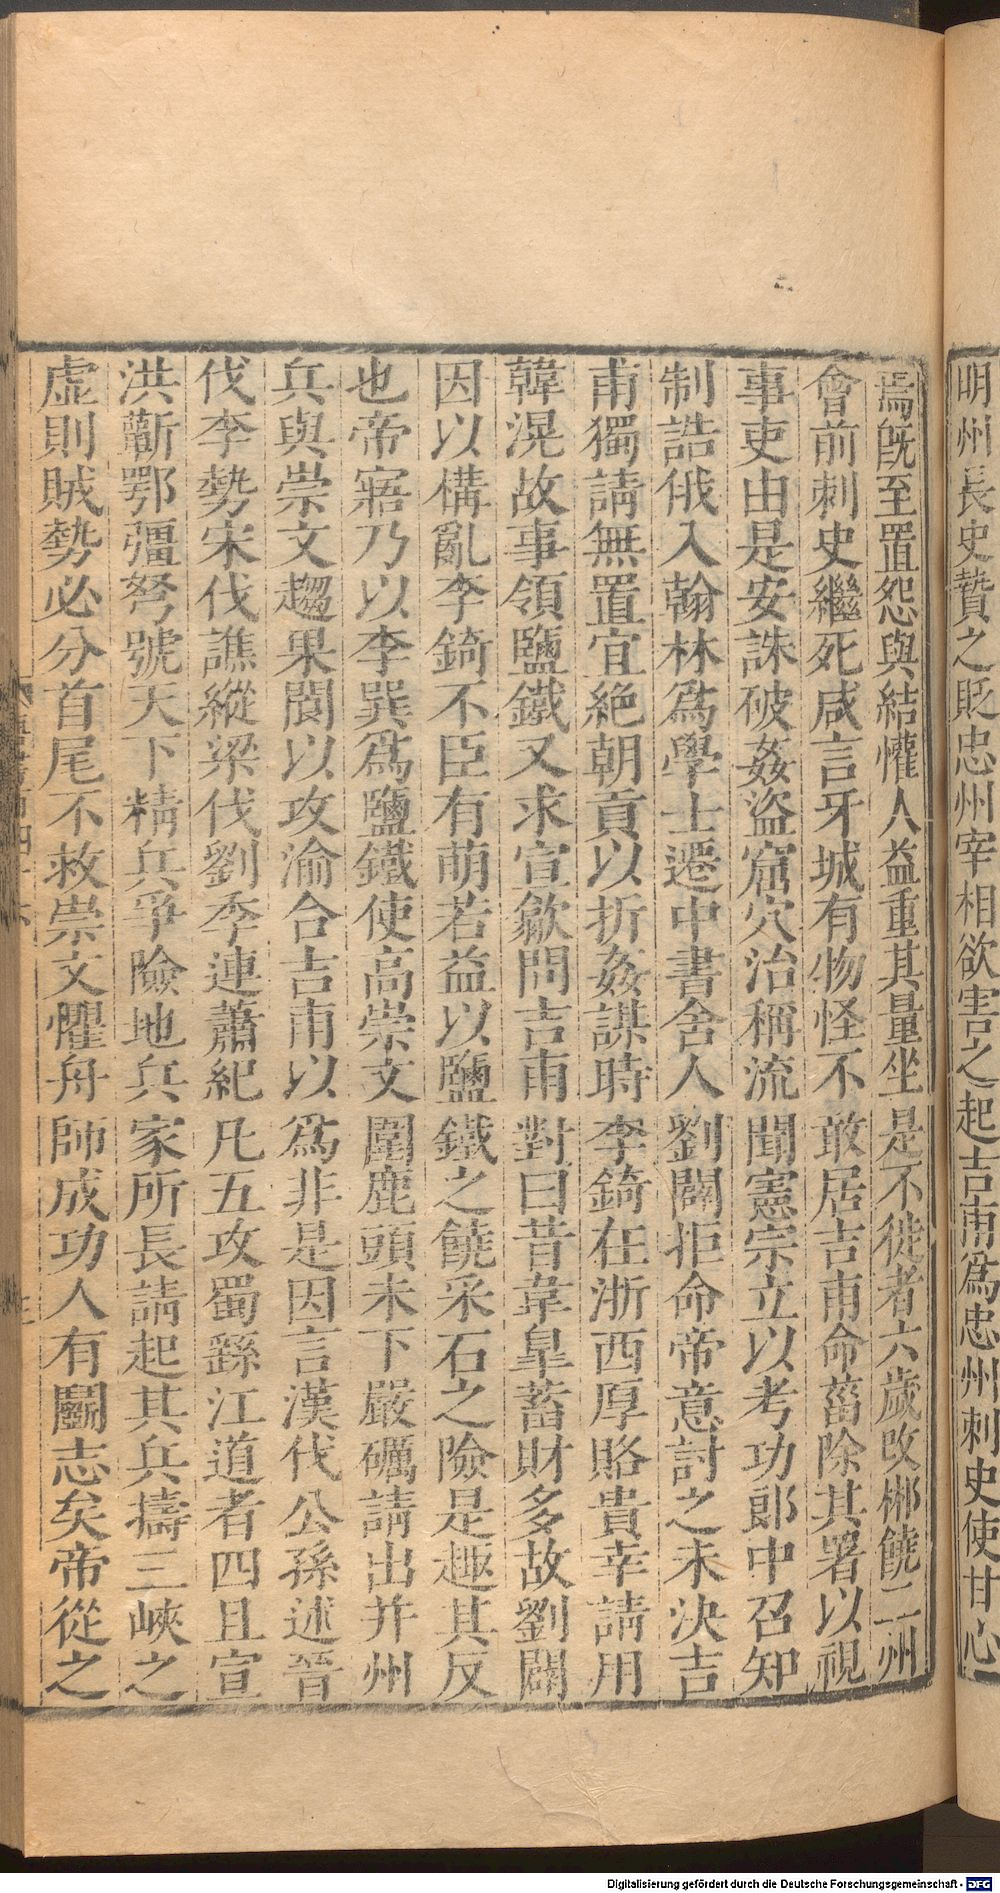 明州長史贄之貶忠州宰相欲害之起吉甫爲忠州刺史使甘心
焉旣至置怨與結懽人益重其量坐是不徙者六歲改郴饒二州
會前刺史繼死咸言牙城有物怪不敢居吉甫命葘除其署以視
事吏由是安誅破姦盜窟穴治稱流聞憲宗立以考功郎中召知
制誥俄入翰林爲學士遷中書舍人劉闢拒命帝意討之未決吉
甫獨請無置宜絶朝貢以折姦謀時李錡在浙西厚賂貴幸請用
韓滉故事領鹽鐵又求宣歙問吉甫對曰昔韋皐蓄財多故劉闢
因以構亂李錡不臣有萌若益以鹽鐵之饒采石之險是趣其反
也帝寤乃以李巽爲鹽鐵使高崇文圍鹿頭未下嚴礪請出并州
兵與崇文趨果閬以攻渝合吉甫以爲非是因言漢伐公孫述晉
伐李勢宋伐譙縱梁伐劉季連蕭紀凡五攻蜀繇江道者四且宣
洪蘄鄂彊弩號天下精兵爭險地兵家所長請起其兵擣三峽之
虛則賊勢必分首尾不救崇文懼舟師成功人有鬭志矣帝從之
Digitalisierung gefördert durch die Deutsche Forschungsgemeinschaft - DFG